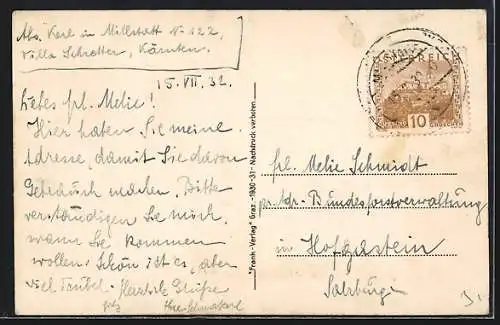 Abs. Karl in Millstatt No 122,
Villa Schrotter, Kärnten.
15. VII. 32.
Liebes frl. Melie!
Hier haben Sie meine
Adresse, damit Sie davon
Gebrauch machen. Bitte
verständigen Sie mich,
wann Sie kommen
wollen. Schön ist es, aber
viel Trubel. Herzliche Grüße
Ihre
"Frank-Verlag" Graz - 1930-31 - Nachdruck verboten.
ÖSTERREICH
10
GROSCHEN
frl. Melie Schmidt
Bundesforstverwaltung
in Hofgastein
Salzburg